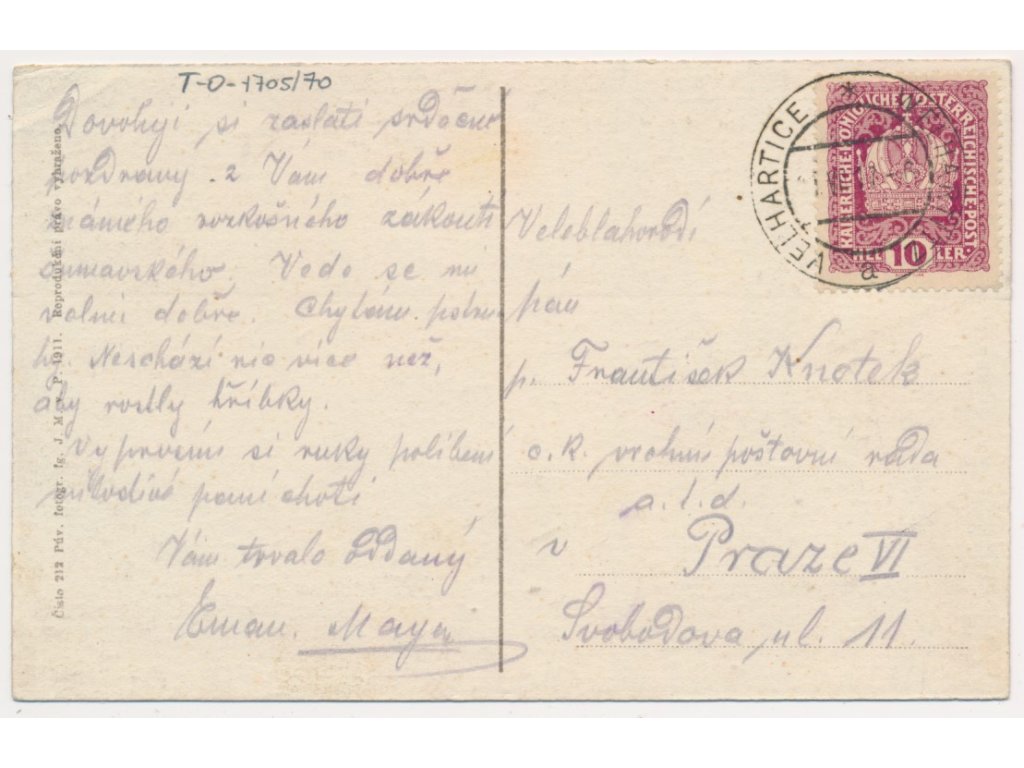 T-O-1705/70
Dovoluji si zaslati srdečné
pozdravy z Vám dobře
známého rozkošného zákoutí
šumavského. Vede se mi
velmi dobře. Chytám pstru-
hy. Neschází nic více než,
aby rostly hříbky.
Vyprošuji si ruky políbení
milostivé paní choti
Vám trvalo oddaný
Eman. Maya
Veleblahorodí
pán
p. František Knotek
c. k. vrchní poštovní rada
a. t. d.
v Praze VI
Svobodova ul. 11.
VELHARTICE *
a
KAISERLICHE KÖNIGLICHE ÖSTERREICHISCHE POST
HELLER 10
Číslo 212 Pův. fotogr. fg. J. P. 1911. Reprodukční právo vyhraženo.